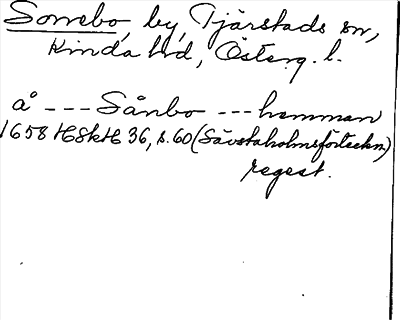 Sonebo, by, Tjärstads sn,
Kinda hd, Österg. l.
å --- Sånbo --- hemman
1658 HSkH 36, s. 60 (Sävstaholmsförteckn.)
regest.